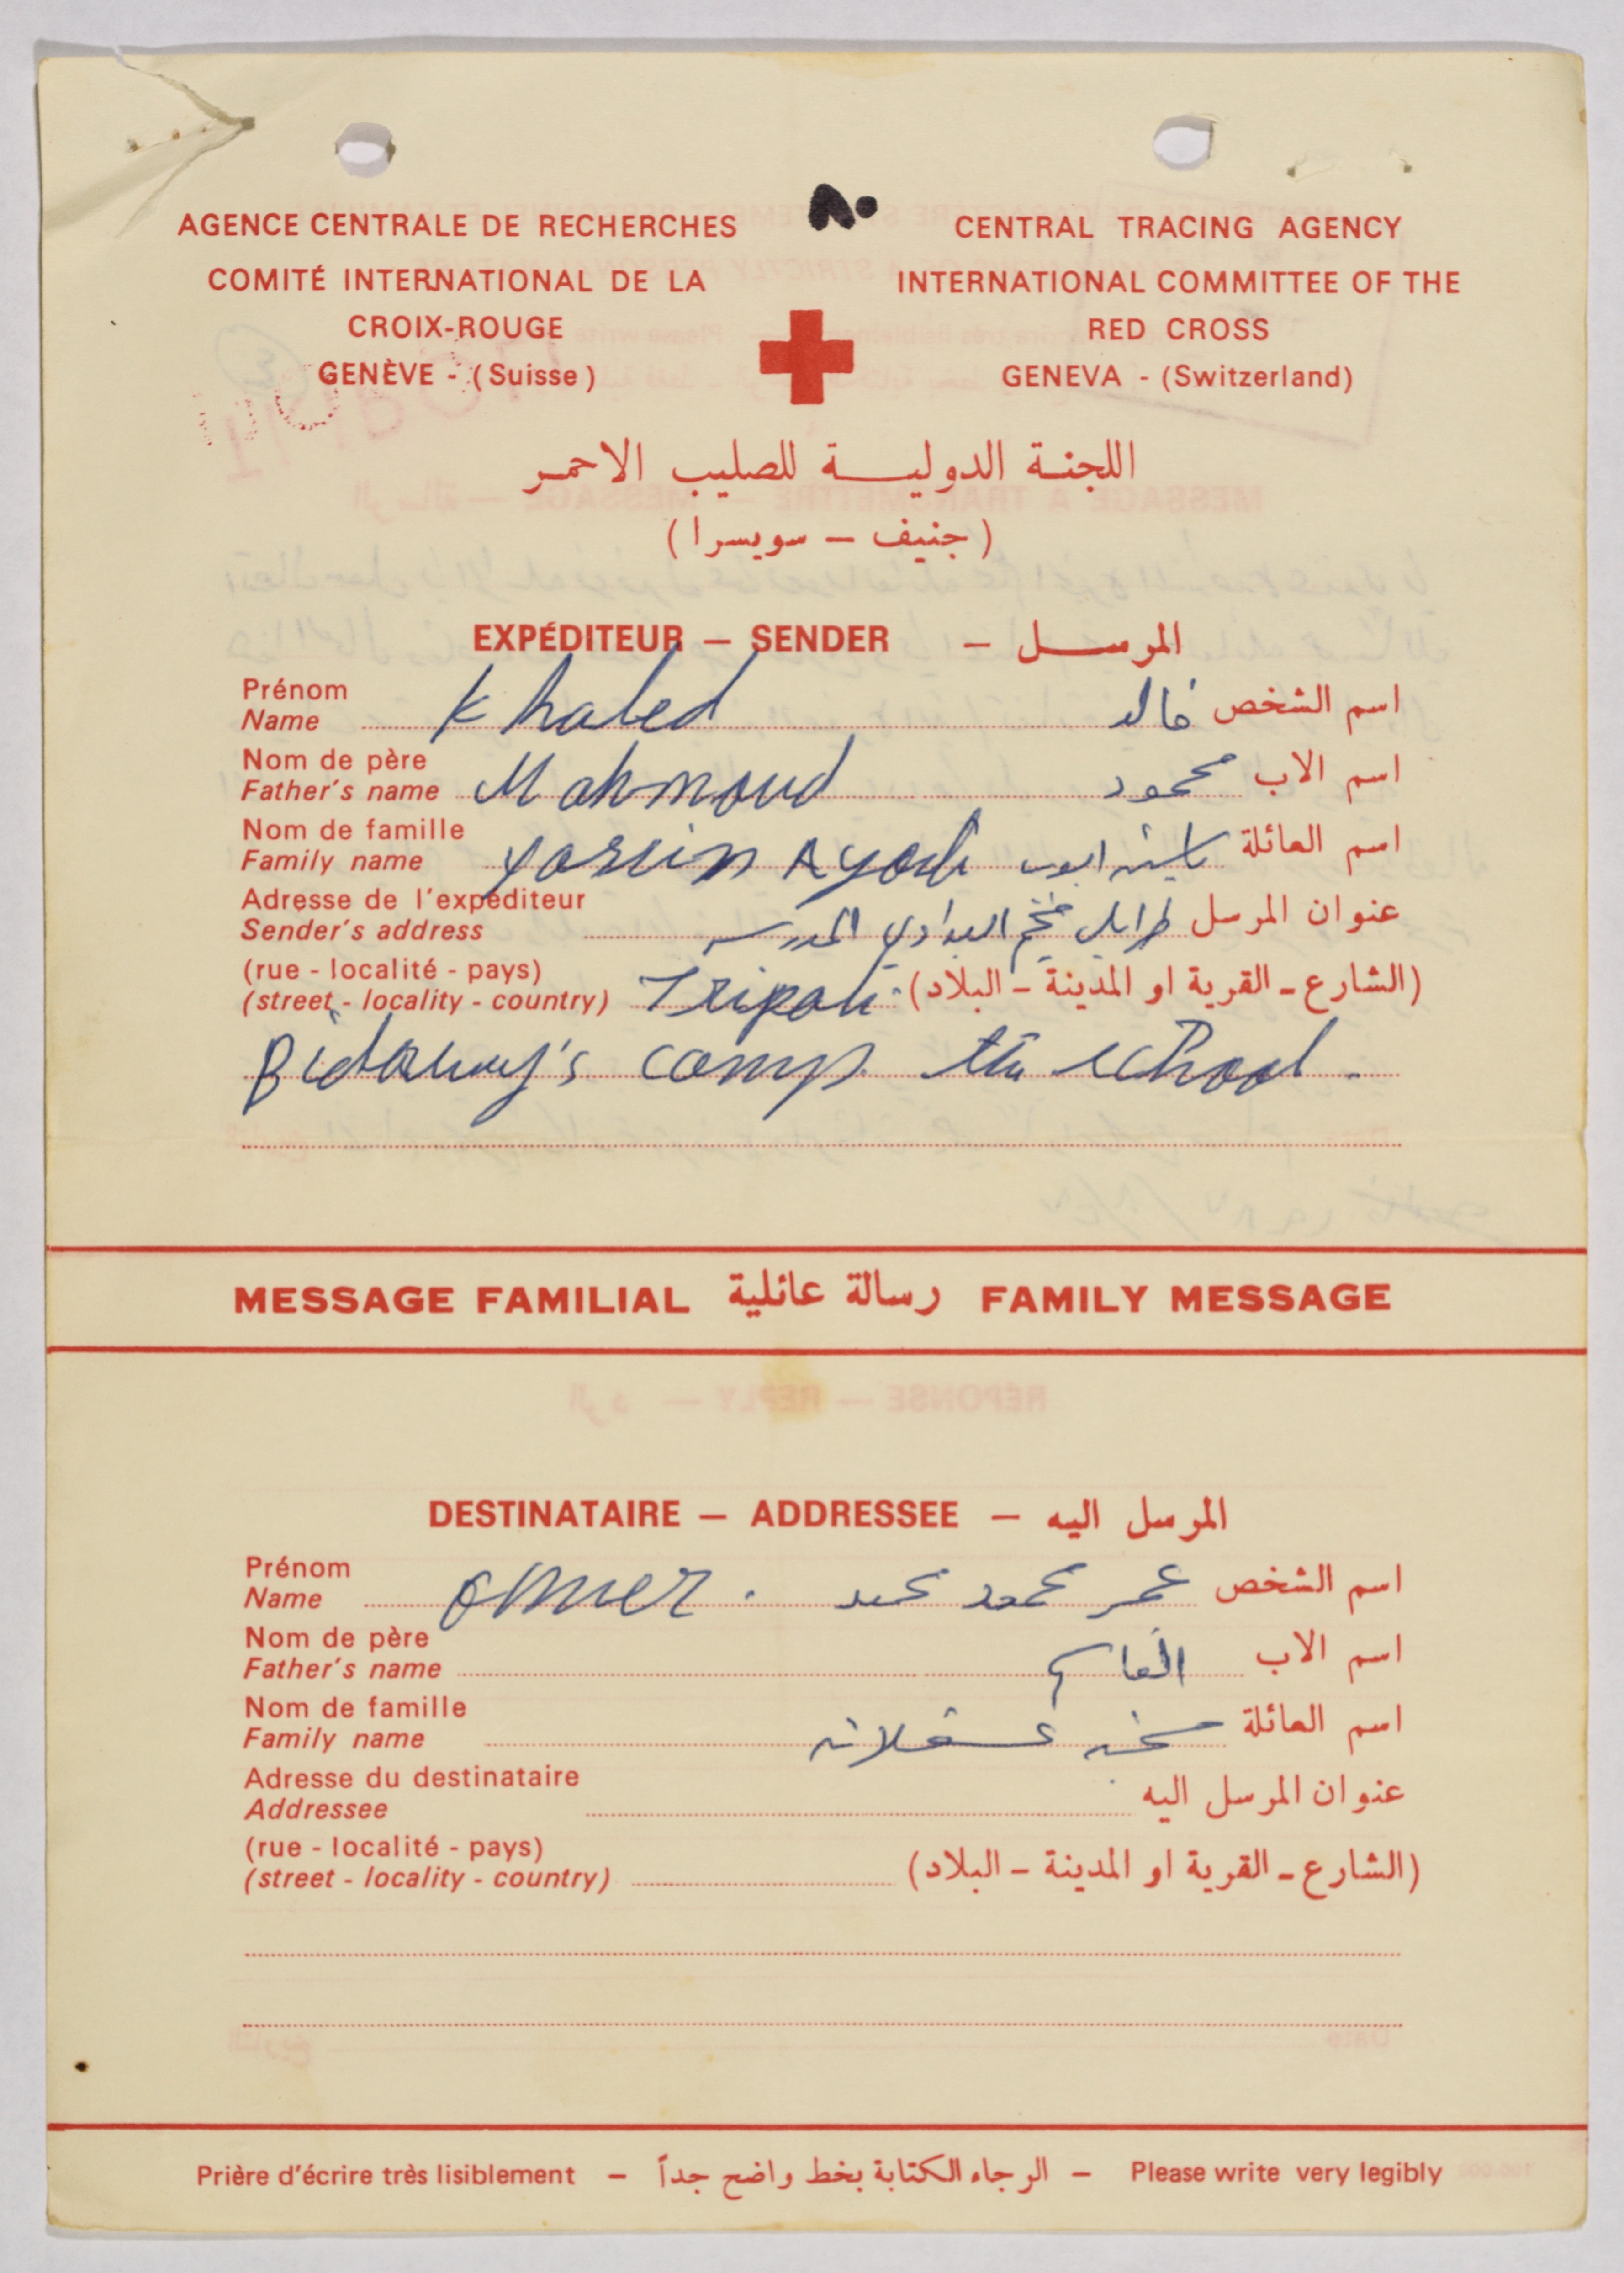 ٨٠
AGENCE CENTRALE DE RECHERCHES
COMITÉ INTERNATIONAL DE LA
CROIX-ROUGE
GENÈVE - (Suisse)
CENTRAL TRACING AGENCY
INTERNATIONAL COMMITTEE OF THE
RED CROSS
GENEVA - (Switzerland)
اللجنة الدولية للصليب الاحمر
(جنيف – سويسرا)
EXPÉDITEUR – SENDER – المرسل
Prénom
Name Khaled خالد اسم الشخص
Nom de père
Father's name Mahmoud محمود اسم الاب
Nom de famille
Family name Yassein Ayoub ياسين ايوب اسم العائلة
Adresse de l'expéditeur
Sender's address طرابلس مخيم البداوي المدرسه عنوان المرسل
(rue - localité - pays)
(street - locality - country) Tripoli. (الشارع - القرية او المدينة - البلاد)
Bidawy's camp the school.
MESSAGE FAMILIAL رسالة عائلية FAMILY MESSAGE
DESTINATAIRE – ADDRESSEE – المرسل اليه
Prénom
Name omer. عمر محمود اسم الشخص
Nom de père
Father's name اسم الاب
Nom de famille
Family name عسقلان اسم العائلة
Adresse du destinataire
Addressee عنوان المرسل اليه
(rue - localité - pays)
(street - locality - country) (الشارع - القرية او المدينة - البلاد)
Prière d'écrire très lisiblement – الرجاء الكتابة بخط واضح جداً – Please write very legibly